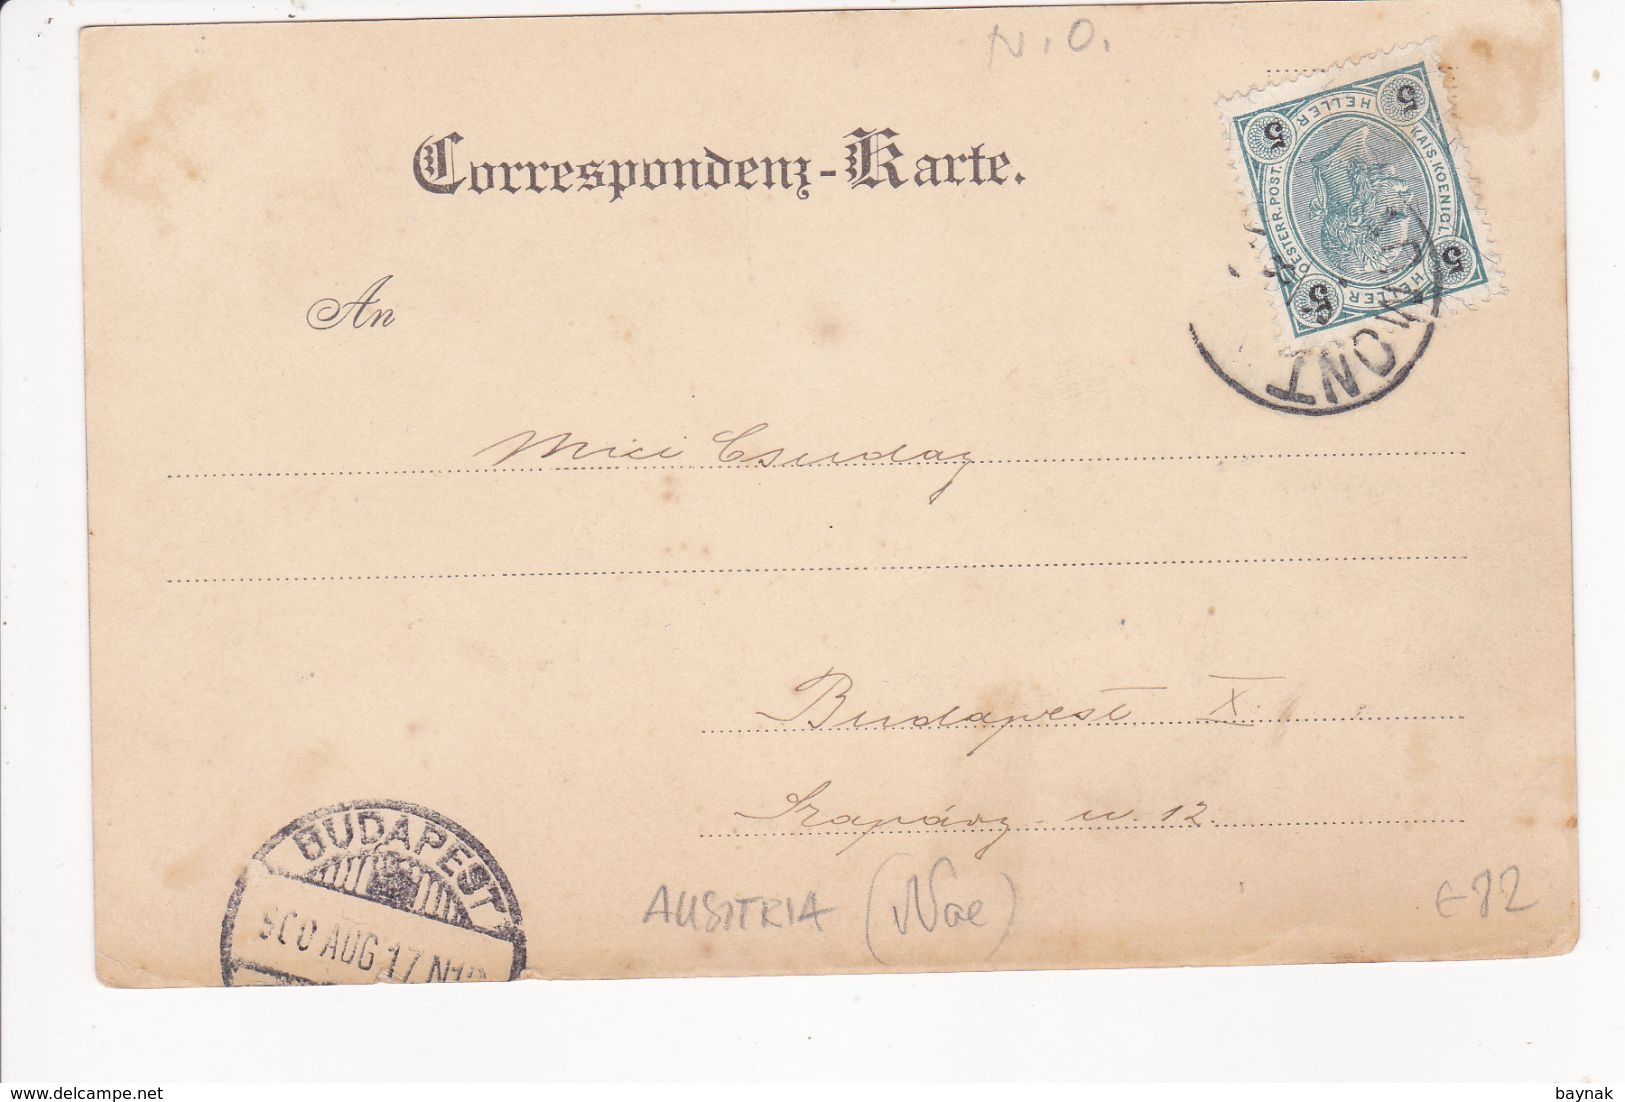 N.O.
Correspondenz-Karte.
An
5 HELLER 5
KAIS. KOENIGL. OESTERR. POST.
5 HELLER 5
Mici Csuday
Budapest X.
Szapáry u. 12.
BUDAPEST
900 AUG 17 N1
AUSTRIA (Noe)
€12
delcampe.net
baynak